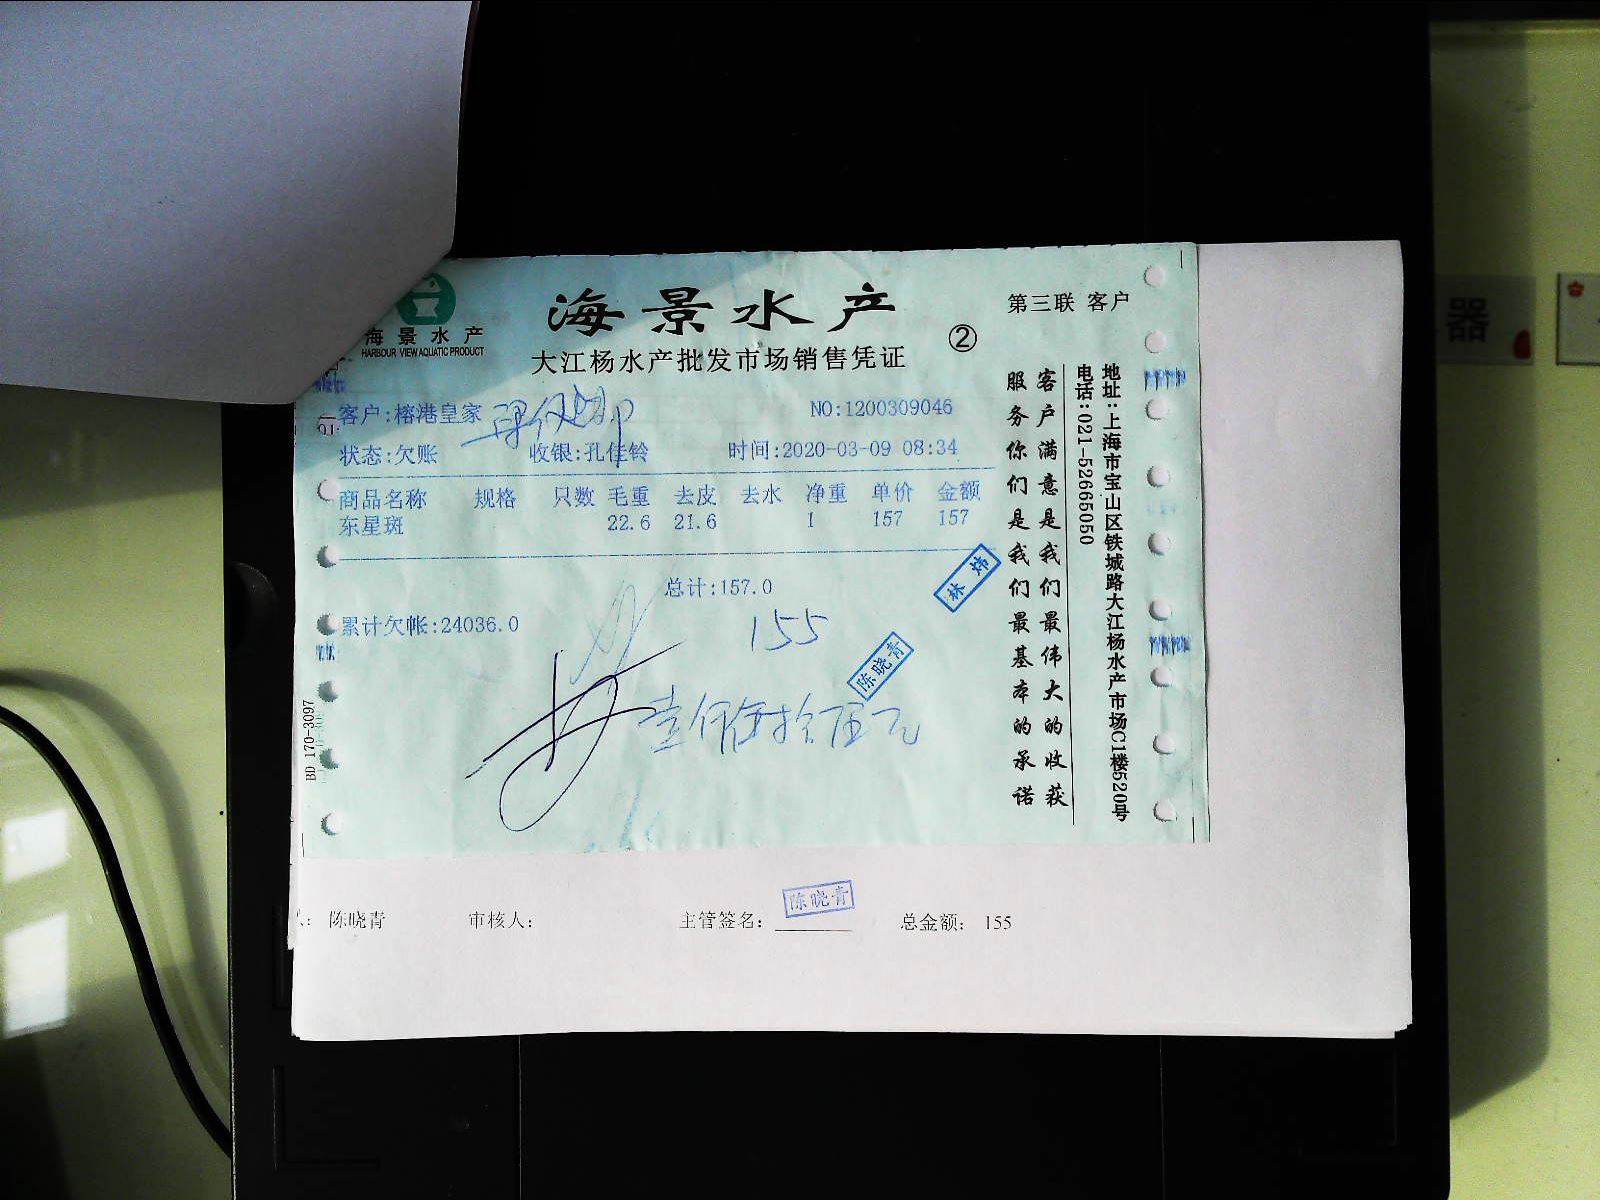 海景水产
HARBOUR VIEW AQUATIC PRODUCT
海景水产
大江杨水产批发市场销售凭证
②
第三联 客户
客户:榕港皇家
NO:1200309046
状态:欠账 收银:孔佳铃 时间:2020-03-09 08:34
商品名称 规格 只数 毛重 去皮 去水 净重 单价 金额
东星斑 22.6 21.6 1 157 157
总计:157.0
累计欠帐:24036.0
155
壹佰伍拾伍元
林炜
陈晓青
客户满意是我们最伟大的收获
服务你们是我们最基本的承诺
地址:上海市宝山区铁城路大江杨水产市场C1楼520号
电话:021-52665050
BD 170-3097
陈晓青 审核人: 主管签名: 陈晓青 总金额: 155
器